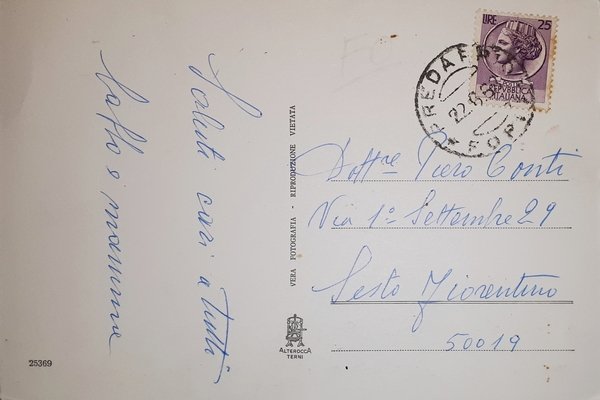 Saluti cari a tutti
babbo e mamma
25369
VERA FOTOGRAFIA - RIPRODUZIONE VIETATA
ALTEROCCA
TERNI
LIRE 25
REPUBBLICA
ITALIANA
PREDAPPIO
FORLI
Dott.re Piero Conti
Via 1º Settembre 29
Sesto Fiorentino
50019